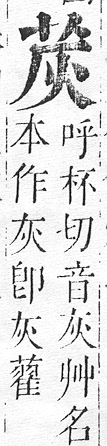 䓇
呼杯切音灰艸名
本作灰卽灰藋